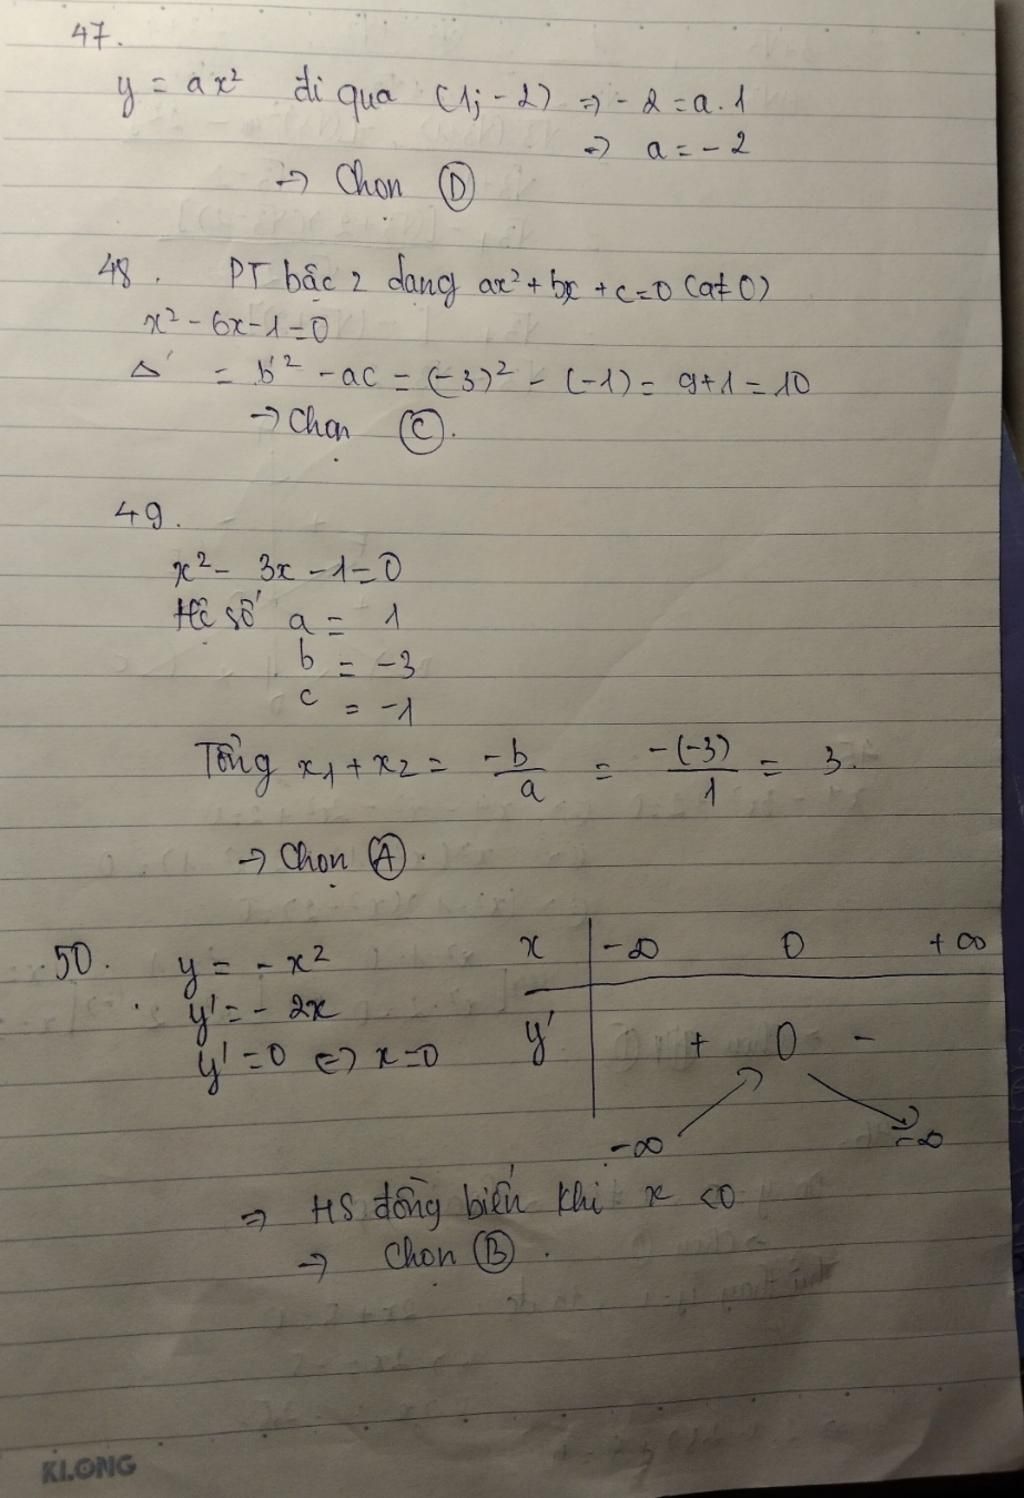 47.
y = ax² đi qua (1; -2) => -2 = a.1
=> a = -2
-> Chọn D
48. PT bậc 2 dạng ax² + bx + c = 0 (a ≠ 0)
x² - 6x - 1 = 0
Δ' = b'² - ac = (-3)² - (-1) = 9+1 = 10
-> Chọn C.
49.
x² - 3x - 1 = 0
Hệ số a = 1
b = -3
c = -1
Tổng x₁ + x₂ = -b/a = -(-3)/1 = 3.
-> Chọn A.
50. y = -x²
y' = -2x
y' = 0 <=> x = 0
x | -∞ 0 +∞
y' | + 0 -
-∞ ↗ ↘ -∞
=> HS đồng biến khi x < 0
-> Chọn B.
KLONG